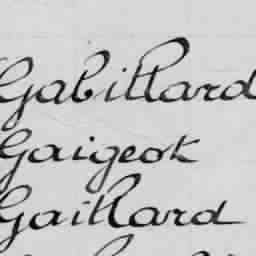 Gabillard
Gaigeot
Gaillard